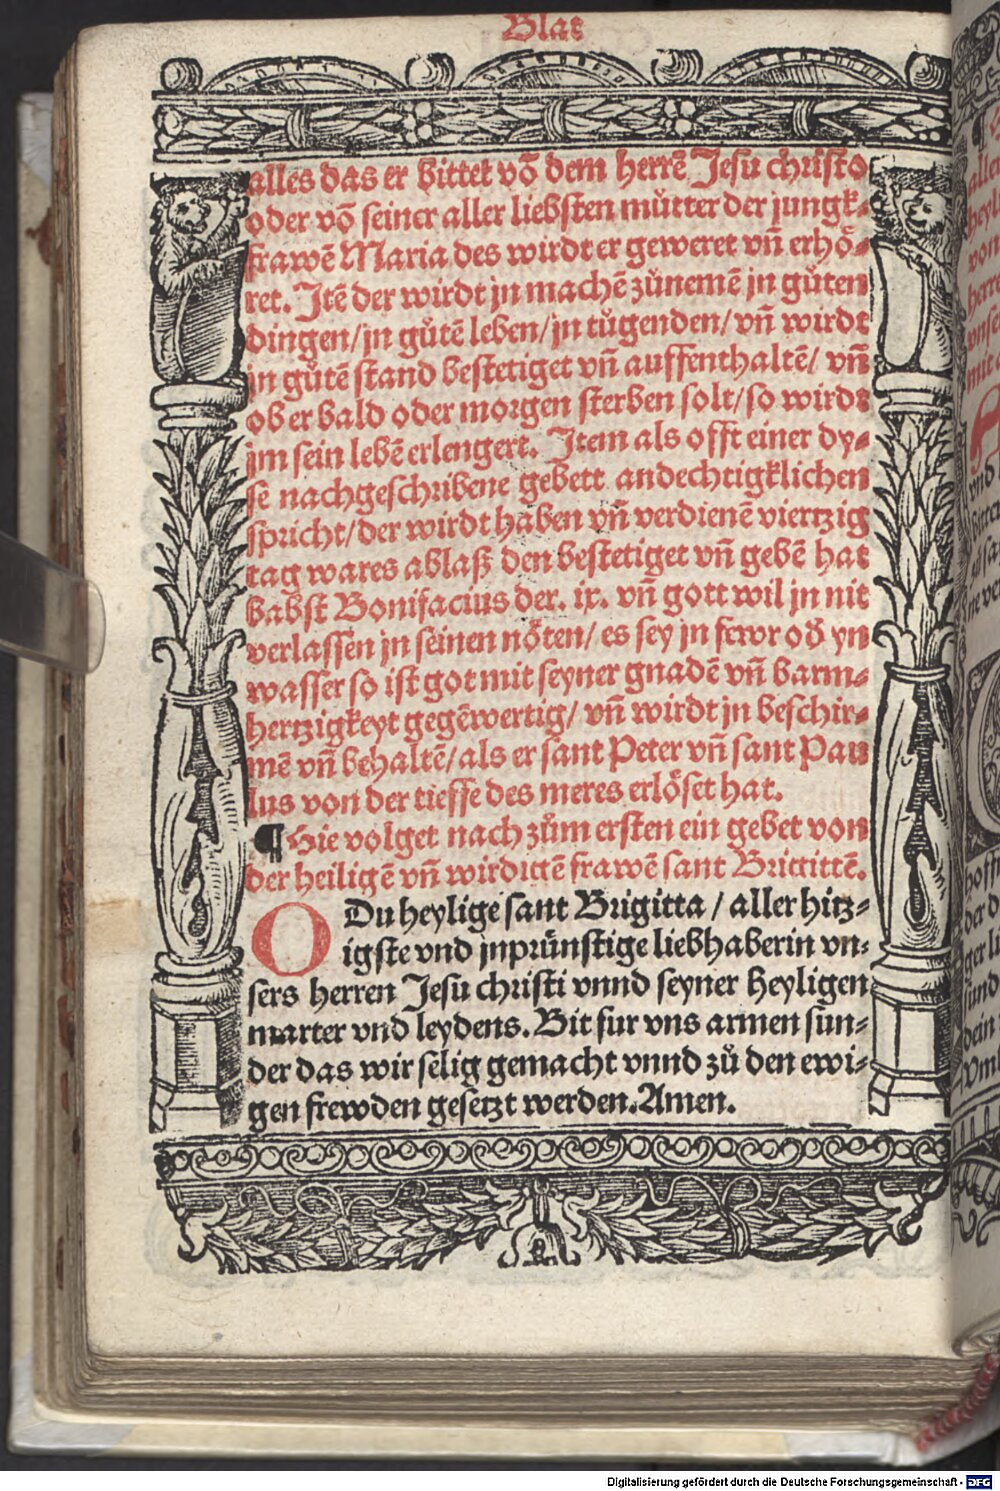 Blat
alles das er bittet võ dem herrẽ Jesu christo
oder võ seiner aller liebsten můtter der jungk⸗
frawẽ Maria des wirdt er geweret vñ erhö⸗
ret. Itẽ der wirdt jn machẽ zůnemẽ jn gůten
dingen/jn gůtẽ leben/jn tůgenden/vñ wirdt
jn gůtẽ stand bestetiget vñ auffenthaltẽ/ vñ
ob er bald oder morgen sterben solt/so wirdt
jm sein lebẽ erlengert. Item als offt einer dy⸗
se nachgeschribene gebett andechtigklichen
spricht/der wirdt haben vñ verdienẽ viertzig
tag wares ablaß den bestetiget vñ gebẽ hat
babst Bonifacius der. ix. vñ gott wil jn nit
verlassen jn seinen nöten/ es sey jn fewr oď yn
wasser so ist got mit seyner gnadẽ vñ barm⸗
hertzigkeyt gegẽwertig/ vñ wirdt jn beschir⸗
mẽ vñ behaltẽ/als er sant Peter vñ sant Pau
lus von der tieffe des meres erlöset hat.
¶ Hie volget nach zům ersten ein gebet von
der heiligẽ vñ wirdigẽ frawẽ sant Brigittẽ.
O Du heylige sant Brigitta / aller hitz⸗
igste vnd jnprünstige liebhaberin vn⸗
sers herren Jesu christi vnnd seyner heyligen
marter vnd leydens. Bit fur vns armen sun⸗
der das wir selig gemacht vnnd zů den ewi⸗
gen frewden gesetzt werden. Amen.
Digitalisierung gefördert durch die Deutsche Forschungsgemeinschaft - DFG